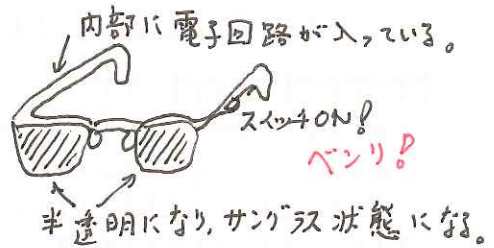 内部に電子回路が入っている。
スイッチON!
ベンリ!
半透明になり,サングラス状態になる。